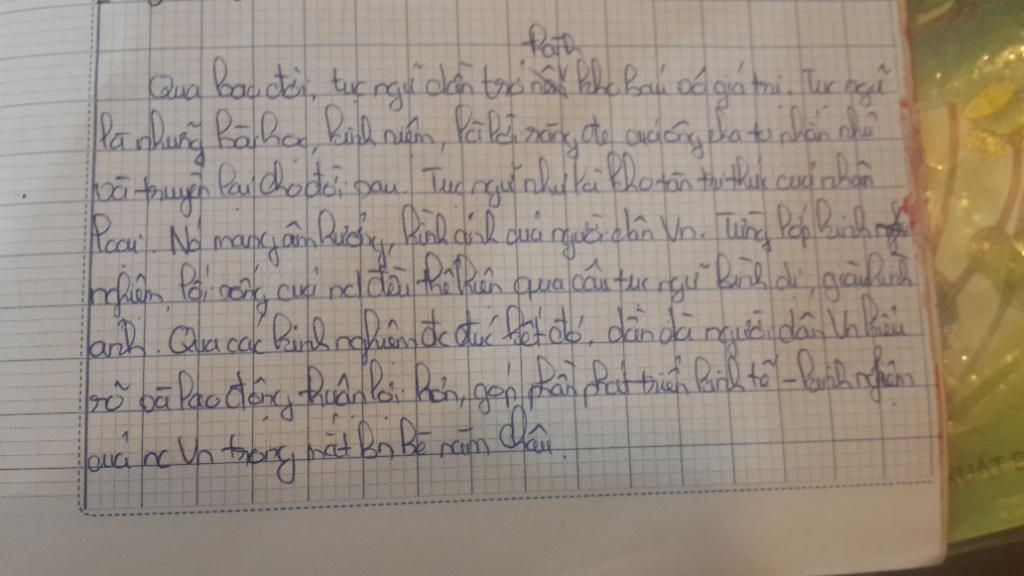 Qua bao đời, tục ngữ dần trở thành kho báu có giá trị. Tục ngữ
là những bài học, kinh nghiệm, là lời răng đe của ông cha ta nhắn nhủ
và truyền lại cho đời sau. Tục ngữ như là kho tàn tri thức của nhân
loại. Nó mang âm hưởng, hình ảnh của người dân VN. Từng lớp kinh
nghiệm lối sống của họ đều thể hiện qua câu tục ngữ bình dị, giàu hình
ảnh. Qua các kinh nghiệm đc đúc kết đó, dần dà người dân VN hiểu
rõ và lao động thuận lợi hơn, góp phần phát triển kinh tế -
của nc VN trong mắt bn bè năm châu.